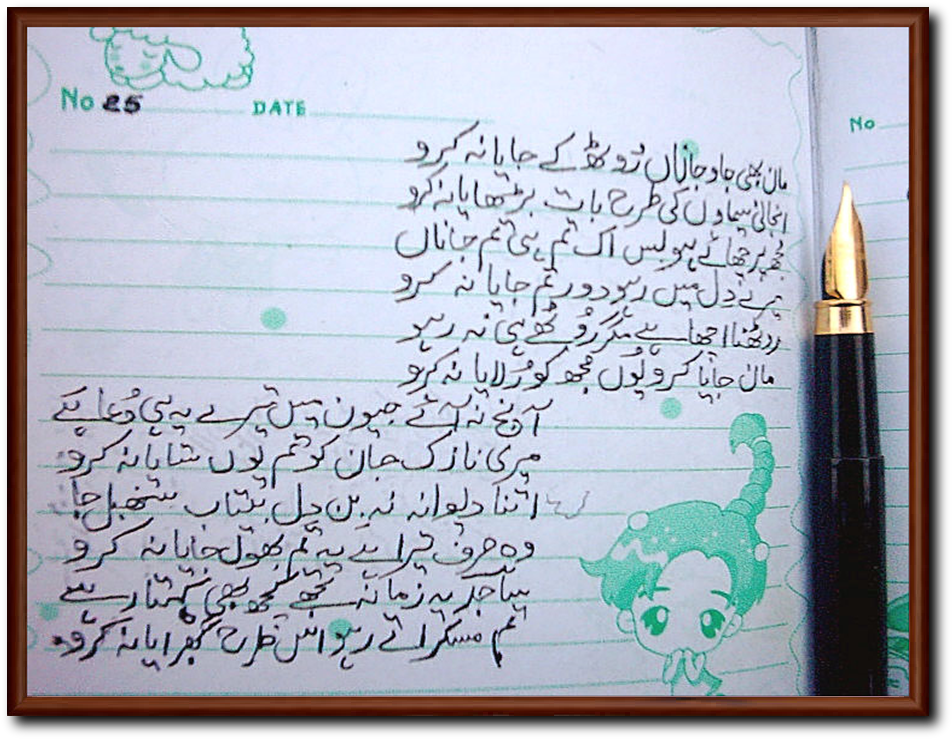 No 25 DATE
No
مان بھی جاو جاناں رُوٹھ کے جایا نہ کرو
انجانی سیماوں کی طرح بات بڑھایا نہ کرو
مجھ پر چھائے ہو بس اک تم ہی تم جاناں
میرے دل میں رہو دور تم جایا نہ کرو
روٹھنا اچھا ہے مگر رُوٹھے ہی نہ رہو
مان جایا کرو یُوں مجھ کو رُلایا نہ کرو
آنچ نہ آئے جیون میں تیرے یہ ہی دُعا ہے
میری نازک جان کو تم یوں ستایا نہ کرو
اتنا دیوانہ نہ بن دل بیتاب سنبھل جا
وہ صرف تیرا ہے یہ تم بھول جایا نہ کرو
ساجد یہ زمانہ تجھے کچھ بھی کہتا رہے
تم مسکراتے رہو اس طرح گھبرایا نہ کرو